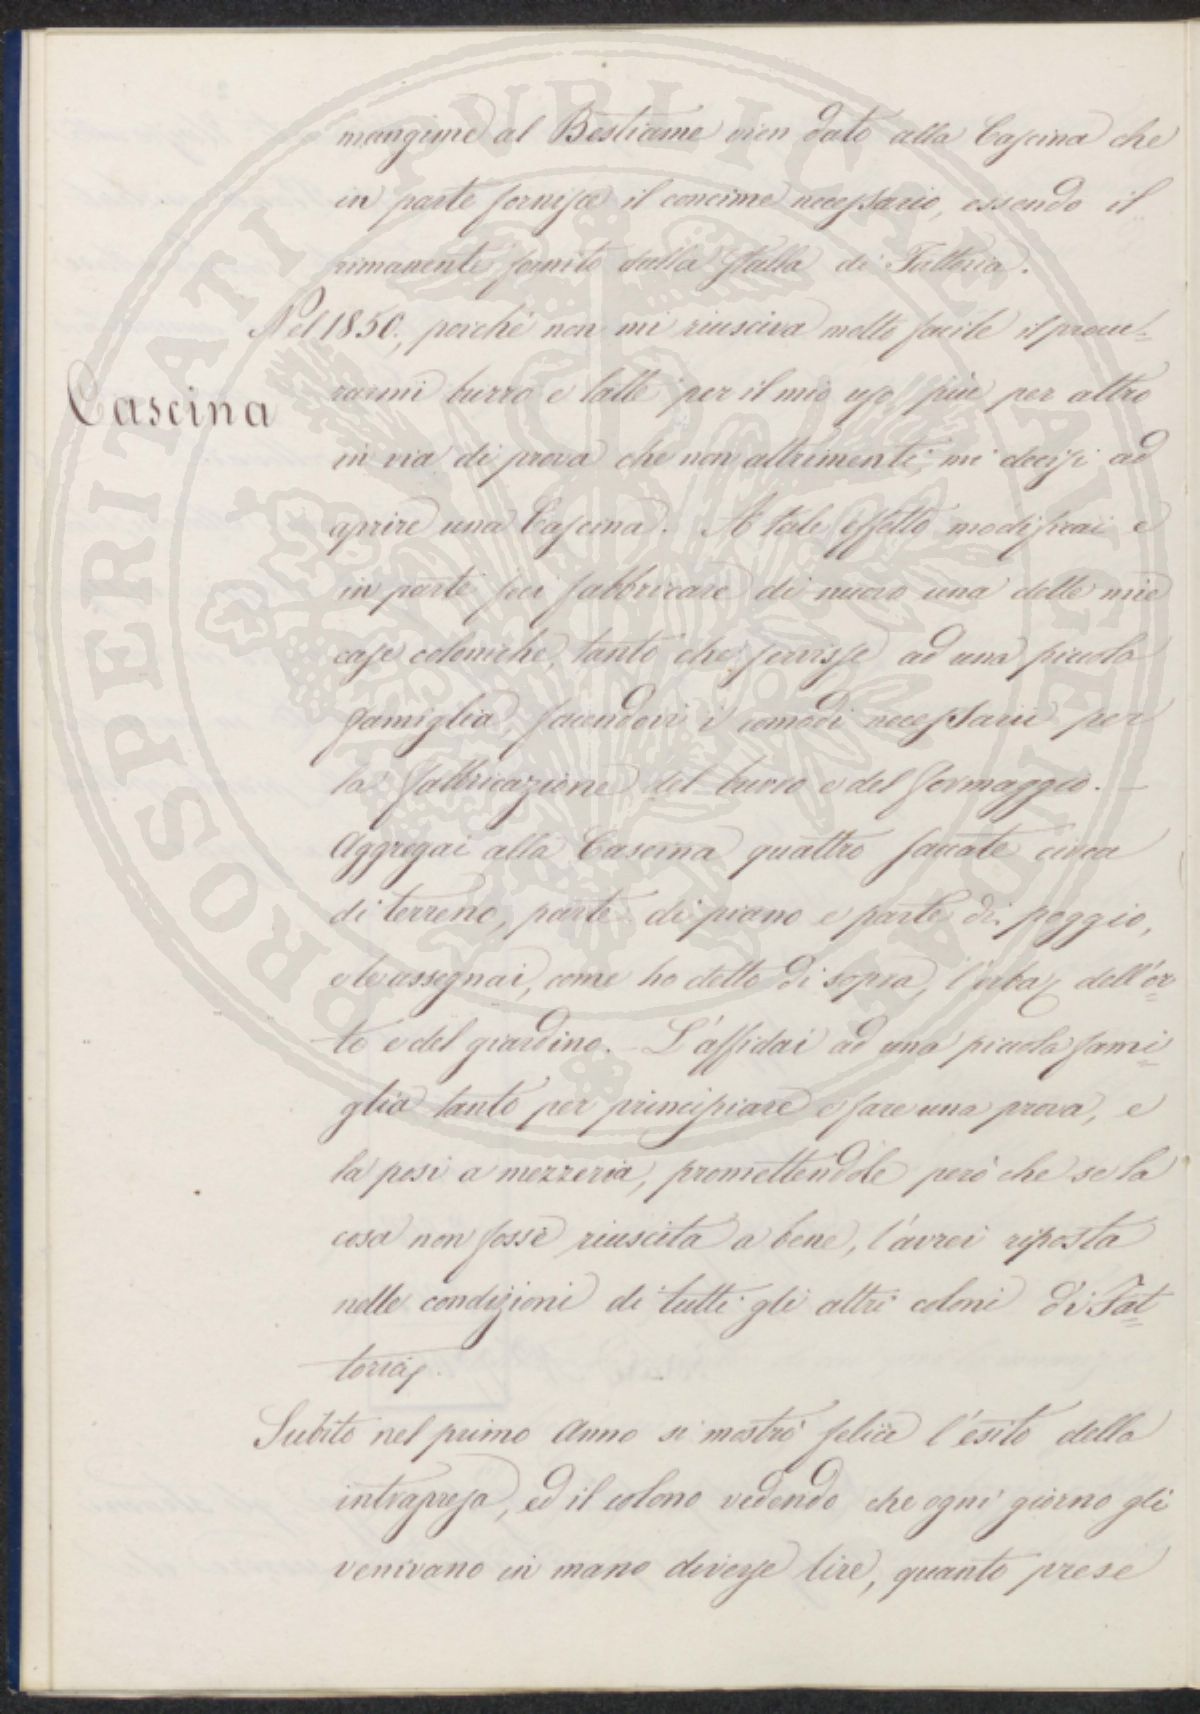 mangime al Bestiame vien dato alla Cascina che
in parte fornisce il concime necessario, essendo il
rimanente fornito dalla Stalla di Fattoria.
Nel 1850, perché non mi riusciva molto facile il procu=
Cascina
rarmi burro e latte per il mio uso, più per altro
in via di prova che non altrimenti, mi decisi ad
aprire una Cascina. A tale effetto modificai e
in parte feci fabbricare di nuovo una delle mie
case coloniche, tanto che servisse ad una piccola
famiglia, facendovi i comodi necessarii per
la fabbricazione del burro e del formaggio. —
Aggregai alla Cascina quattro saccate circa
di terreno, parte di piano e parte di poggio,
e le assegnai, come ho detto di sopra, l'erba dell'or=
to e del giardino. — L'affidai ad una piccola fami=
glia tanto per principiare e fare una prova, e
la posi a mezzeria, promettendole però che se la
cosa non fosse riuscita a bene, l'avrei riposta
nelle condizioni di tutti gli altri coloni di Fat=
toria.
Subito nel primo anno si mostrò felice l'esito della
intrapresa, ed il colono vedendo che ogni giorno gli
venivano in mano diverse lire, quanto prese
PROSPERITATI PVBLICAE AVGENDAE